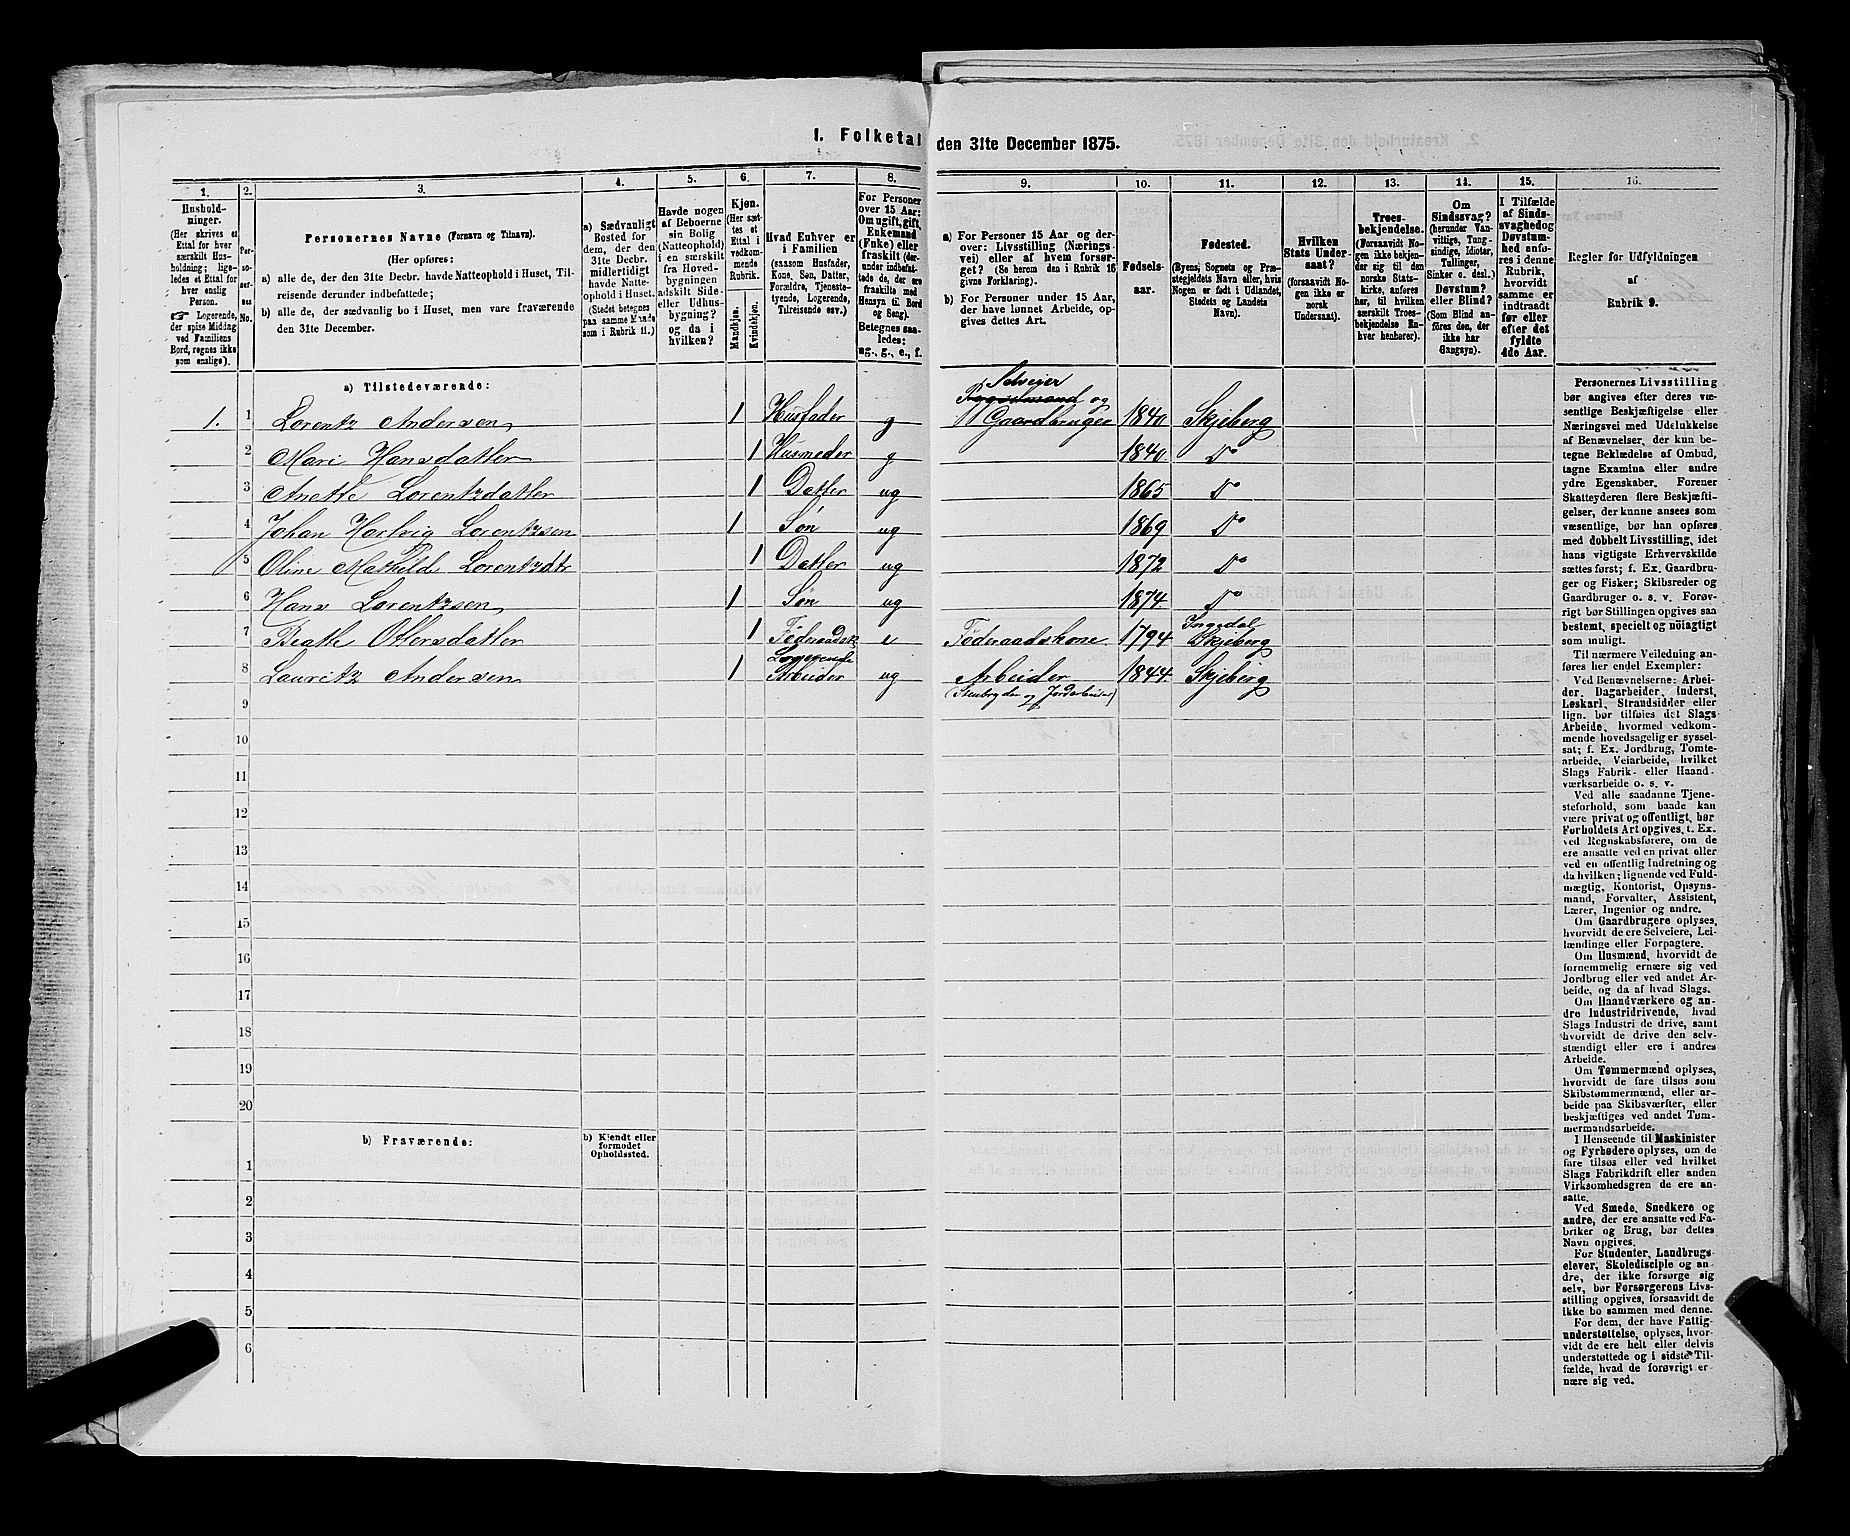 1. Folketal den 31te December 1875.
1. 2. 3. 4. 5. 6. 7. 8. 9. 10. 11. 12. 13. 14. 15. 16.
Hushold-
ninger.
(Her skrives et
Ettal for hver
særskilt Hus-
holdning; lige-
ledes et Ettal for
hver enslig
Person.
☞ Logerende,
der spise Middag
ved Familiens
Bord, regnes ikke
som enslige).
Per-
so-
ner-
nes
No.
Personernes Navne (Fornavn og Tilnavn).
(Her opføres:
a) alle de, der den 31te Decbr. havde Natteophold i Huset, Til-
reisende derunder indbefattede;
b) alle de, der sædvanlig bo i Huset, men vare fraværende
den 31te December.
a) Sædvanligt
Bosted for
dem, der den
31te Decbr.
midlertidigt
havde Natte-
ophold i Huset.
(Stedet betegnes
paa samme Maade
som i Rubrik 11.)
Havde nogen
af Beboerne
sin Bolig
(Natteophold)
i en særskilt
fra Hoved-
bygningen
adskilt Side-
eller Udhus-
bygning?
og da i
hvilken?
Kjøn.
(Her sæt-
tes et
Ettal i
vedkom-
mende
Rubrik.
Mandkjøn.
Kvindekjøn.
Hvad Enhver er
i Familien
(saasom Husfader,
Kone, Søn, Datter,
Forældre, Tjeneste-
tyende, Logerende,
Tilreisende osv.)
For Personer
over 15 Aar:
Om ugift, gift,
Enkemand
(Enke) eller
fraskilt (der-
under indbefat-
tede de, der ere
fraskilte med
Hensyn til Bord
og Seng).
Betegnes saa-
ledes:
ug., g., e., f.
a) For Personer 15 Aar og der-
over: Livsstilling (Nærings-
vei) eller af hvem forsør-
get? (Se herom den i Rubrik 16
givne Forklaring).
b) For Personer under 15 Aar,
der have lønnet Arbeide, op-
gives dettes Art.
Fødsels-
aar.
Fødested.
(Byens, Sognets og Præ-
stegjeldets Navn eller, hvis
Nogen er født i Udlandet,
Stedets og Landets
Navn).
Hvilken
Stats Under-
saat?
(forsaavidt No-
gen ikke er
norsk
Undersaat).
Troes-
bekjendelse.
(Forsaavidt No-
gen ikke bekjen-
der sig til den
norske Stats-
kirke, anføres
her, til hvilken
særskilt Troes-
bekjendelse En-
hver henhører).
Om
Sindssvag?
(herunder Van-
vittige, Tung-
sindige, Idioter,
Tullinger,
Sinker o. desl.)
Døvstum?
eller Blind?
(Som Blind an-
føres den, der
ikke har
Gangsyn).
I Tilfælde
af Sinds-
svaghed og
Døvstum-
hed anfø-
res i denne
Rubrik,
hvorvidt
samme er
indtraadt
før eller
efter det
fyldte
4de Aar.
Regler for Udfyldningen
af
Rubrik 9.
a) Tilstedeværende:
1. 1 Lorentz Andersen 1 Husfader g Selveier og Gaardbruger 1840 Skjeberg
2 Mari Hansdatter 1 Husmoder g 1840 Do
3 Anette Lorentzdatter 1 Datter ug 1865 Do
4 Johan Hartvig Lorentzsen 1 Søn ug 1869 Do
5 Oline Mathild Lorentzdtr 1 Datter ug 1872 Do
6 Hans Lorentzsen 1 Søn ug 1874 Do
7 Beathe Ottersdatter 1 e Føderaadskone 1794 Ingedal Skjeberg
8 Lauritz Andersen 1 Logerende Arbeider ug Arbeider 1844 Skjeberg
9
10
11
12
13
14
15
16
17
18
19
20
b) Fraværende:
b) Kjendt eller
formodet
Opholdssted.
1
2
3
4
5
6
Personernes Livsstilling
bør angives efter deres væ-
sentlige Beskjæftigelse eller
Næringsvei med Udelukkelse
af Benævnelser, der kun be-
tegne Beklædelse af Ombud,
tagne Examina eller andre
ydre Egenskaber. Forener
Skatteyderen flere Beskjæfti-
gelser, der kunne ansees som
væsentlige, bør han opføres
med dobbelt Livsstilling, idet
hans vigtigste Erhvervskilde
sættes først; f. Ex. Gaardbru-
ger og Fisker; Skibsreder og
Gaardbruger o. s. v. Forøv-
rigt bør Stillingen opgives saa
bestemt, specielt og nöiagtigt
som muligt.
Til nærmere Veiledning an-
føres her endel Exempler:
Ved Benævnelserne: Arbei-
der, Dagarbeider, Inderst,
Løskarl, Strandsidder eller
lign. bør tilføies det Slags
Arbeide, hvormed vedkom-
mende hovedsagelig er syssel-
sat; f. Ex. Jordbrug, Tomte-
arbeide, Veiarbeide, hvilket
Slags Fabrik- eller Haand-
værksarbeide o. s. v.
Ved alle saadanne Tjene-
steforhold, som baade kan
være privat og offentligt, bør
Forholdets Art opgives, t. Ex.
ved Regnskabsførere, om de
ere ansatte ved en privat eller
ved en offentlig Indretning og
da hvilken; lignende ved Fuld-
mægtig, Kontorist, Opsyns-
mand, Forvalter, Assistent,
Lærer, Ingeniør og andre.
Om Gaardbrugere oplyses,
hvorvidt de ere Selveiere, Lei-
lændinge eller Forpagtere.
Om Husmænd, hvorvidt de
fornemmelig ernære sig ved
Jordbrug eller ved andet Ar-
beide, og da af hvad Slags.
Om Haandværkere og an-
dre Industridrivende, hvad
Slags Industri de drive, samt
hvorvidt de drive den selv-
stændigt eller ere i andres
Arbeide.
Om Tømmermænd oplyses,
hvorvidt de fare tilsøs som
Skibstømmermænd, eller ar-
beide paa Skibsværfter, eller
beskjæftiges ved andet Tøm-
mermandsarbeide.
I Henseende til Maskinister
og Fyrbødere oplyses, om de
fare tilsøs eller ved hvilket
Slags Fabrikdrift eller anden
Virksomhedsgren de ere an-
satte.
Ved Smede, Snedkere og
andre, der ere ansatte ved Fa-
briker og Brug, bør dettes
Navn opgives.
For Studenter, Landbrugs-
elever, Skoledisciple og an-
dre, der ikke forsørge sig
selv, bør Forsørgerens Livs-
stilling opgives, forsaavidt de
ikke bo sammen med denne.
For dem, der have Fattig-
understøttelse, oplyses, hvor-
vidt de ere helt eller delvis
understøttede og i sidste Til-
fælde, hvad de forøvrigt er-
nære sig ved.